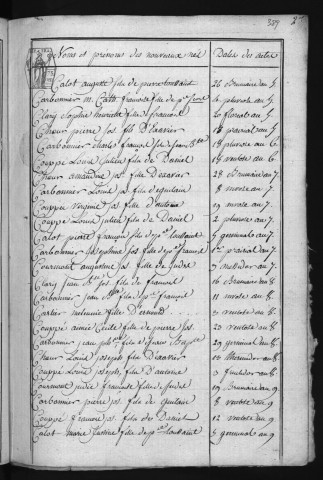 Noms et prenoms des nouveaux nés Dates des actes
Calot augustte fils de pierre toussaint 26 brumaire an 5
Carbonnier M. Cath. françoise fille de 6 pluviose an 5
Clary Sophie henriette fille de françois 20 floréal an 5
Cheur pierre jos. fils D'xavier 18 prairial an 5
Carbonnier charles françois fils de jean Bte 18 pluviose au 6
Couppé Louis julien fils de Daniel 14 ventose an 6
Cheur amandine jos. fille D'xavier 28 brumaire an 7
Carbonnier Louis fils d'eguilain 8 nivose an 7
Couppé Virginie jos. fille d'antoine 19 nivose an 7
Couppé Louis julien fils de Daniel 2 pluviose an 7
Calot pierre françois fils de pre toussaint 5 germinal an 7
Carbonnier josephine jos. fille de françois 1er prairial an 7
Cournault augustine jos. fille de 5 messidor an 7
Clary jean Bte jos. fils de françois 16 brumaire an 8
Carbonnier jean Bte fils de françois 11 nivose an 8
Cartier melanie fille D'emond 3 ventose an 8
Couppé aimée Cecile fille de pierre jos. 23 ventose an 8
Carbonnier jean fils de jean Baptte 29 germinal an 8
Cheur Louis joseph fils D'xavier 13 Messidor an 8
Couppé Louis joseph fils D'antoine 3 fructidor an 8
Cournault françoise fille de 19 Brumaire an 9
Carbonnier pierre jos. fils de Guilain 8 ventose an 9
Couppé françois jos. fils de Daniel 12 ventose an 9
Calot Marie justine fille de pre toussaint 5 germinal an 9